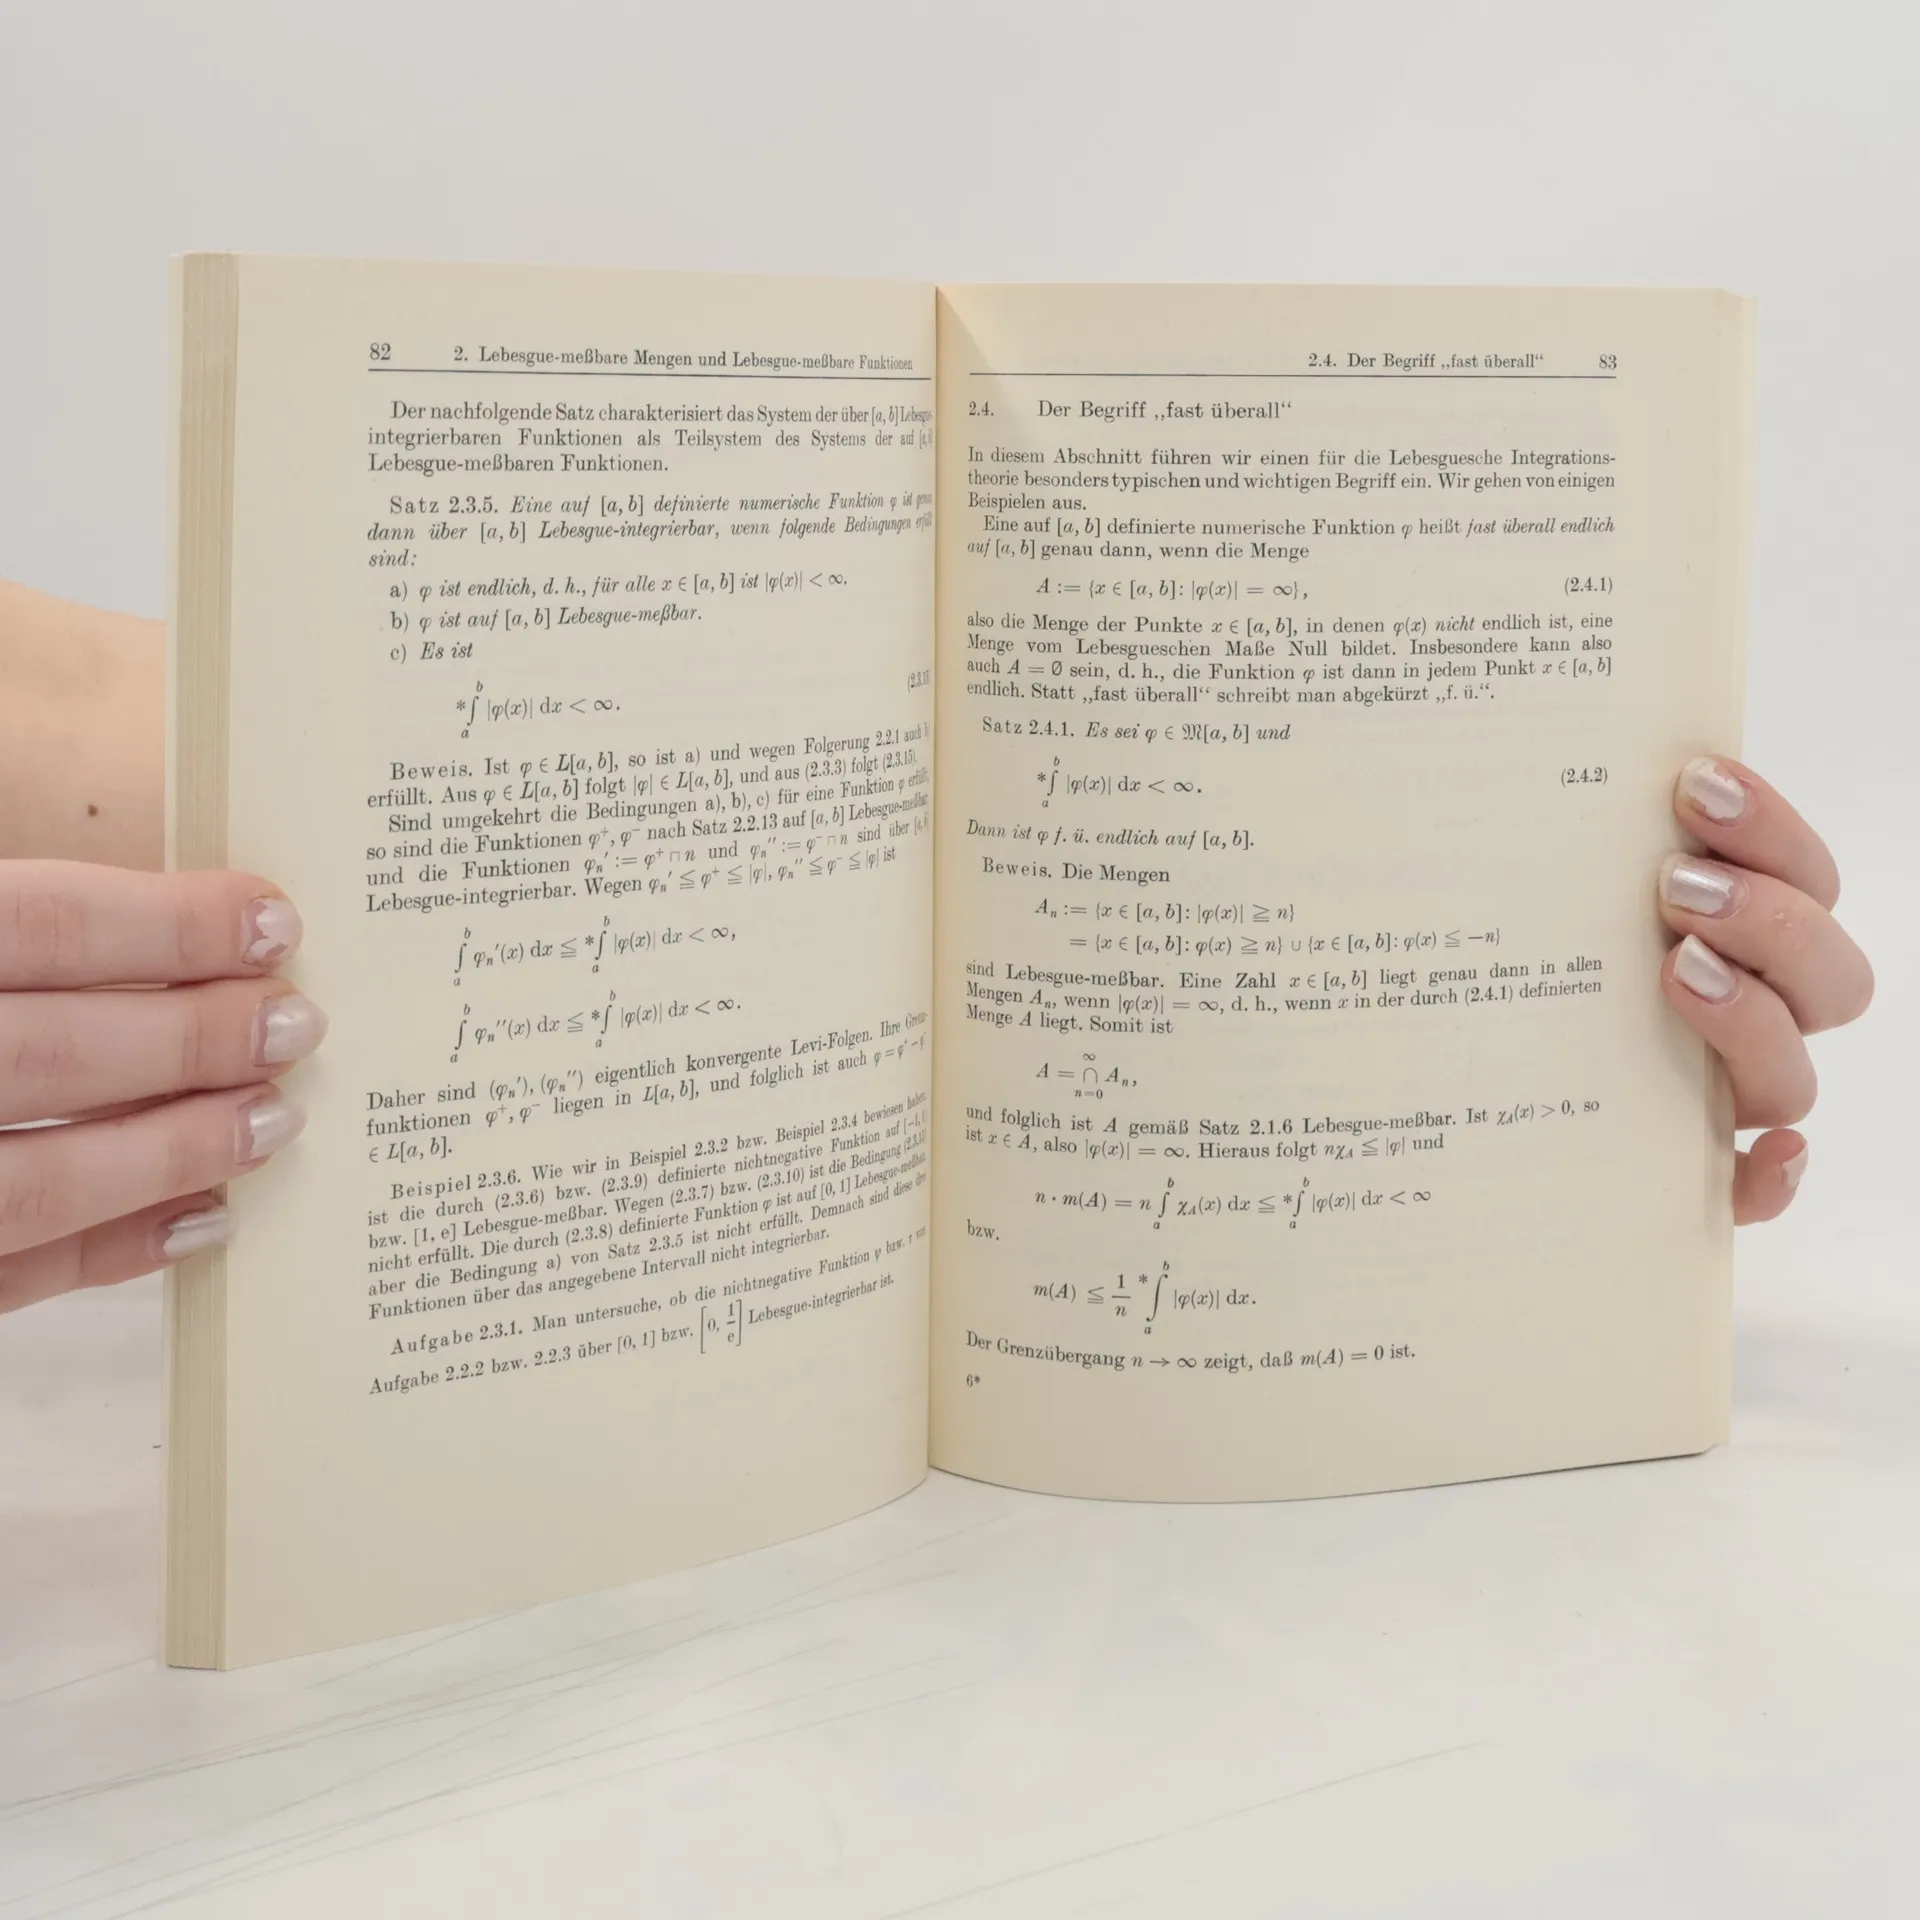 82 2. Lebesgue-meßbare Mengen und Lebesgue-meßbare Funktionen
Der nachfolgende Satz charakterisiert das System der über [a, b] Lebesgue-
integrierbaren Funktionen als Teilsystem des Systems der auf [a, b]
Lebesgue-meßbaren Funktionen.
Satz 2.3.5. Eine auf [a, b] definierte numerische Funktion φ ist genau
dann über [a, b] Lebesgue-integrierbar, wenn folgende Bedingungen erfüllt
sind:
a) φ ist endlich, d. h., für alle x ∈ [a, b] ist |φ(x)| < ∞.
b) φ ist auf [a, b] Lebesgue-meßbar.
c) Es ist
*∫_a^b |φ(x)| dx < ∞. (2.3.15)
Beweis. Ist φ ∈ L[a, b], so ist a) und wegen Folgerung 2.2.1 auch b)
erfüllt. Aus φ ∈ L[a, b] folgt |φ| ∈ L[a, b], und aus (2.3.3) folgt (2.3.15).
Sind umgekehrt die Bedingungen a), b), c) für eine Funktion φ erfüllt,
so sind die Funktionen φ⁺, φ⁻ nach Satz 2.2.13 auf [a, b] Lebesgue-meßbar,
und die Funktionen φₙ′ := φ⁺ ⊓ n und φₙ′′ := φ⁻ ⊓ n sind über [a, b]
Lebesgue-integrierbar. Wegen φₙ′ ≦ φ⁺ ≦ |φ|, φₙ′′ ≦ φ⁻ ≦ |φ| ist
∫_a^b φₙ′(x) dx ≦ *∫_a^b |φ(x)| dx < ∞,
∫_a^b φₙ′′(x) dx ≦ *∫_a^b |φ(x)| dx < ∞.
Daher sind (φₙ′), (φₙ′′) eigentlich konvergente Levi-Folgen. Ihre Grenz-
funktionen φ⁺, φ⁻ liegen in L[a, b], und folglich ist auch φ = φ⁺ − φ⁻
∈ L[a, b].
Beispiel 2.3.6. Wie wir in Beispiel 2.3.2 bzw. Beispiel 2.3.4 bewiesen haben,
ist die durch (2.3.6) bzw. (2.3.9) definierte nichtnegative Funktion auf [−1, 1]
bzw. [1, e] Lebesgue-meßbar. Wegen (2.3.7) bzw. (2.3.10) ist die Bedingung (2.3.15)
nicht erfüllt. Die durch (2.3.8) definierte Funktion φ ist auf [0, 1] Lebesgue-meßbar,
aber die Bedingung a) von Satz 2.3.5 ist nicht erfüllt. Demnach sind diese drei
Funktionen über das angegebene Intervall nicht integrierbar.
Aufgabe 2.3.1. Man untersuche, ob die nichtnegative Funktion ψ bzw. τ von
Aufgabe 2.2.2 bzw. 2.2.3 über [0, 1] bzw. [0, 1/e] Lebesgue-integrierbar ist.
2.4. Der Begriff „fast überall“ 83
2.4. Der Begriff „fast überall“
In diesem Abschnitt führen wir einen für die Lebesguesche Integrations-
theorie besonders typischen und wichtigen Begriff ein. Wir gehen von einigen
Beispielen aus.
Eine auf [a, b] definierte numerische Funktion φ heißt fast überall endlich
auf [a, b] genau dann, wenn die Menge
A := {x ∈ [a, b]: |φ(x)| = ∞}, (2.4.1)
also die Menge der Punkte x ∈ [a, b], in denen φ(x) nicht endlich ist, eine
Menge vom Lebesgueschen Maße Null bildet. Insbesondere kann also
auch A = Ø sein, d. h., die Funktion φ ist dann in jedem Punkt x ∈ [a, b]
endlich. Statt „fast überall“ schreibt man abgekürzt „f. ü.“.
Satz 2.4.1. Es sei φ ∈ 𝔐[a, b] und
*∫_a^b |φ(x)| dx < ∞. (2.4.2)
Dann ist φ f. ü. endlich auf [a, b].
Beweis. Die Mengen
Aₙ := {x ∈ [a, b]: |φ(x)| ≧ n}
= {x ∈ [a, b]: φ(x) ≧ n} ∪ {x ∈ [a, b]: φ(x) ≦ −n}
sind Lebesgue-meßbar. Eine Zahl x ∈ [a, b] liegt genau dann in allen
Mengen Aₙ, wenn |φ(x)| = ∞, d. h., wenn x in der durch (2.4.1) definierten
Menge A liegt. Somit ist
A = ∩_{n=0}^∞ Aₙ,
und folglich ist A gemäß Satz 2.1.6 Lebesgue-meßbar. Ist χ_A(x) > 0, so
ist x ∈ A, also |φ(x)| = ∞. Hieraus folgt nχ_A ≦ |φ| und
n · m(A) = n ∫_a^b χ_A(x) dx ≦ *∫_a^b |φ(x)| dx < ∞
bzw.
m(A) ≦ 1/n *∫_a^b |φ(x)| dx.
Der Grenzübergang n → ∞ zeigt, daß m(A) = 0 ist.
6*